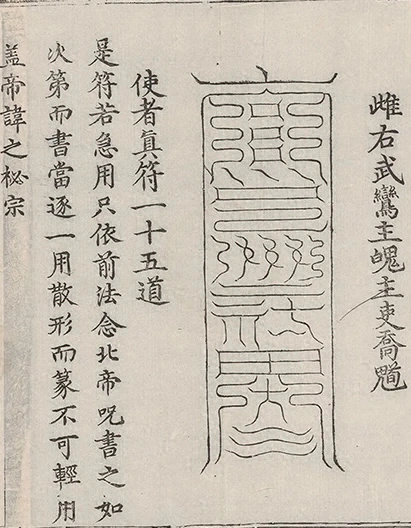 雌右武鸞主魄主吏喬魁
使者真符一十五道
是符若急用只依前法念北帝咒書之如
次第而書當逐一用散形而篆不可輕用
盖帝諱之秘宗